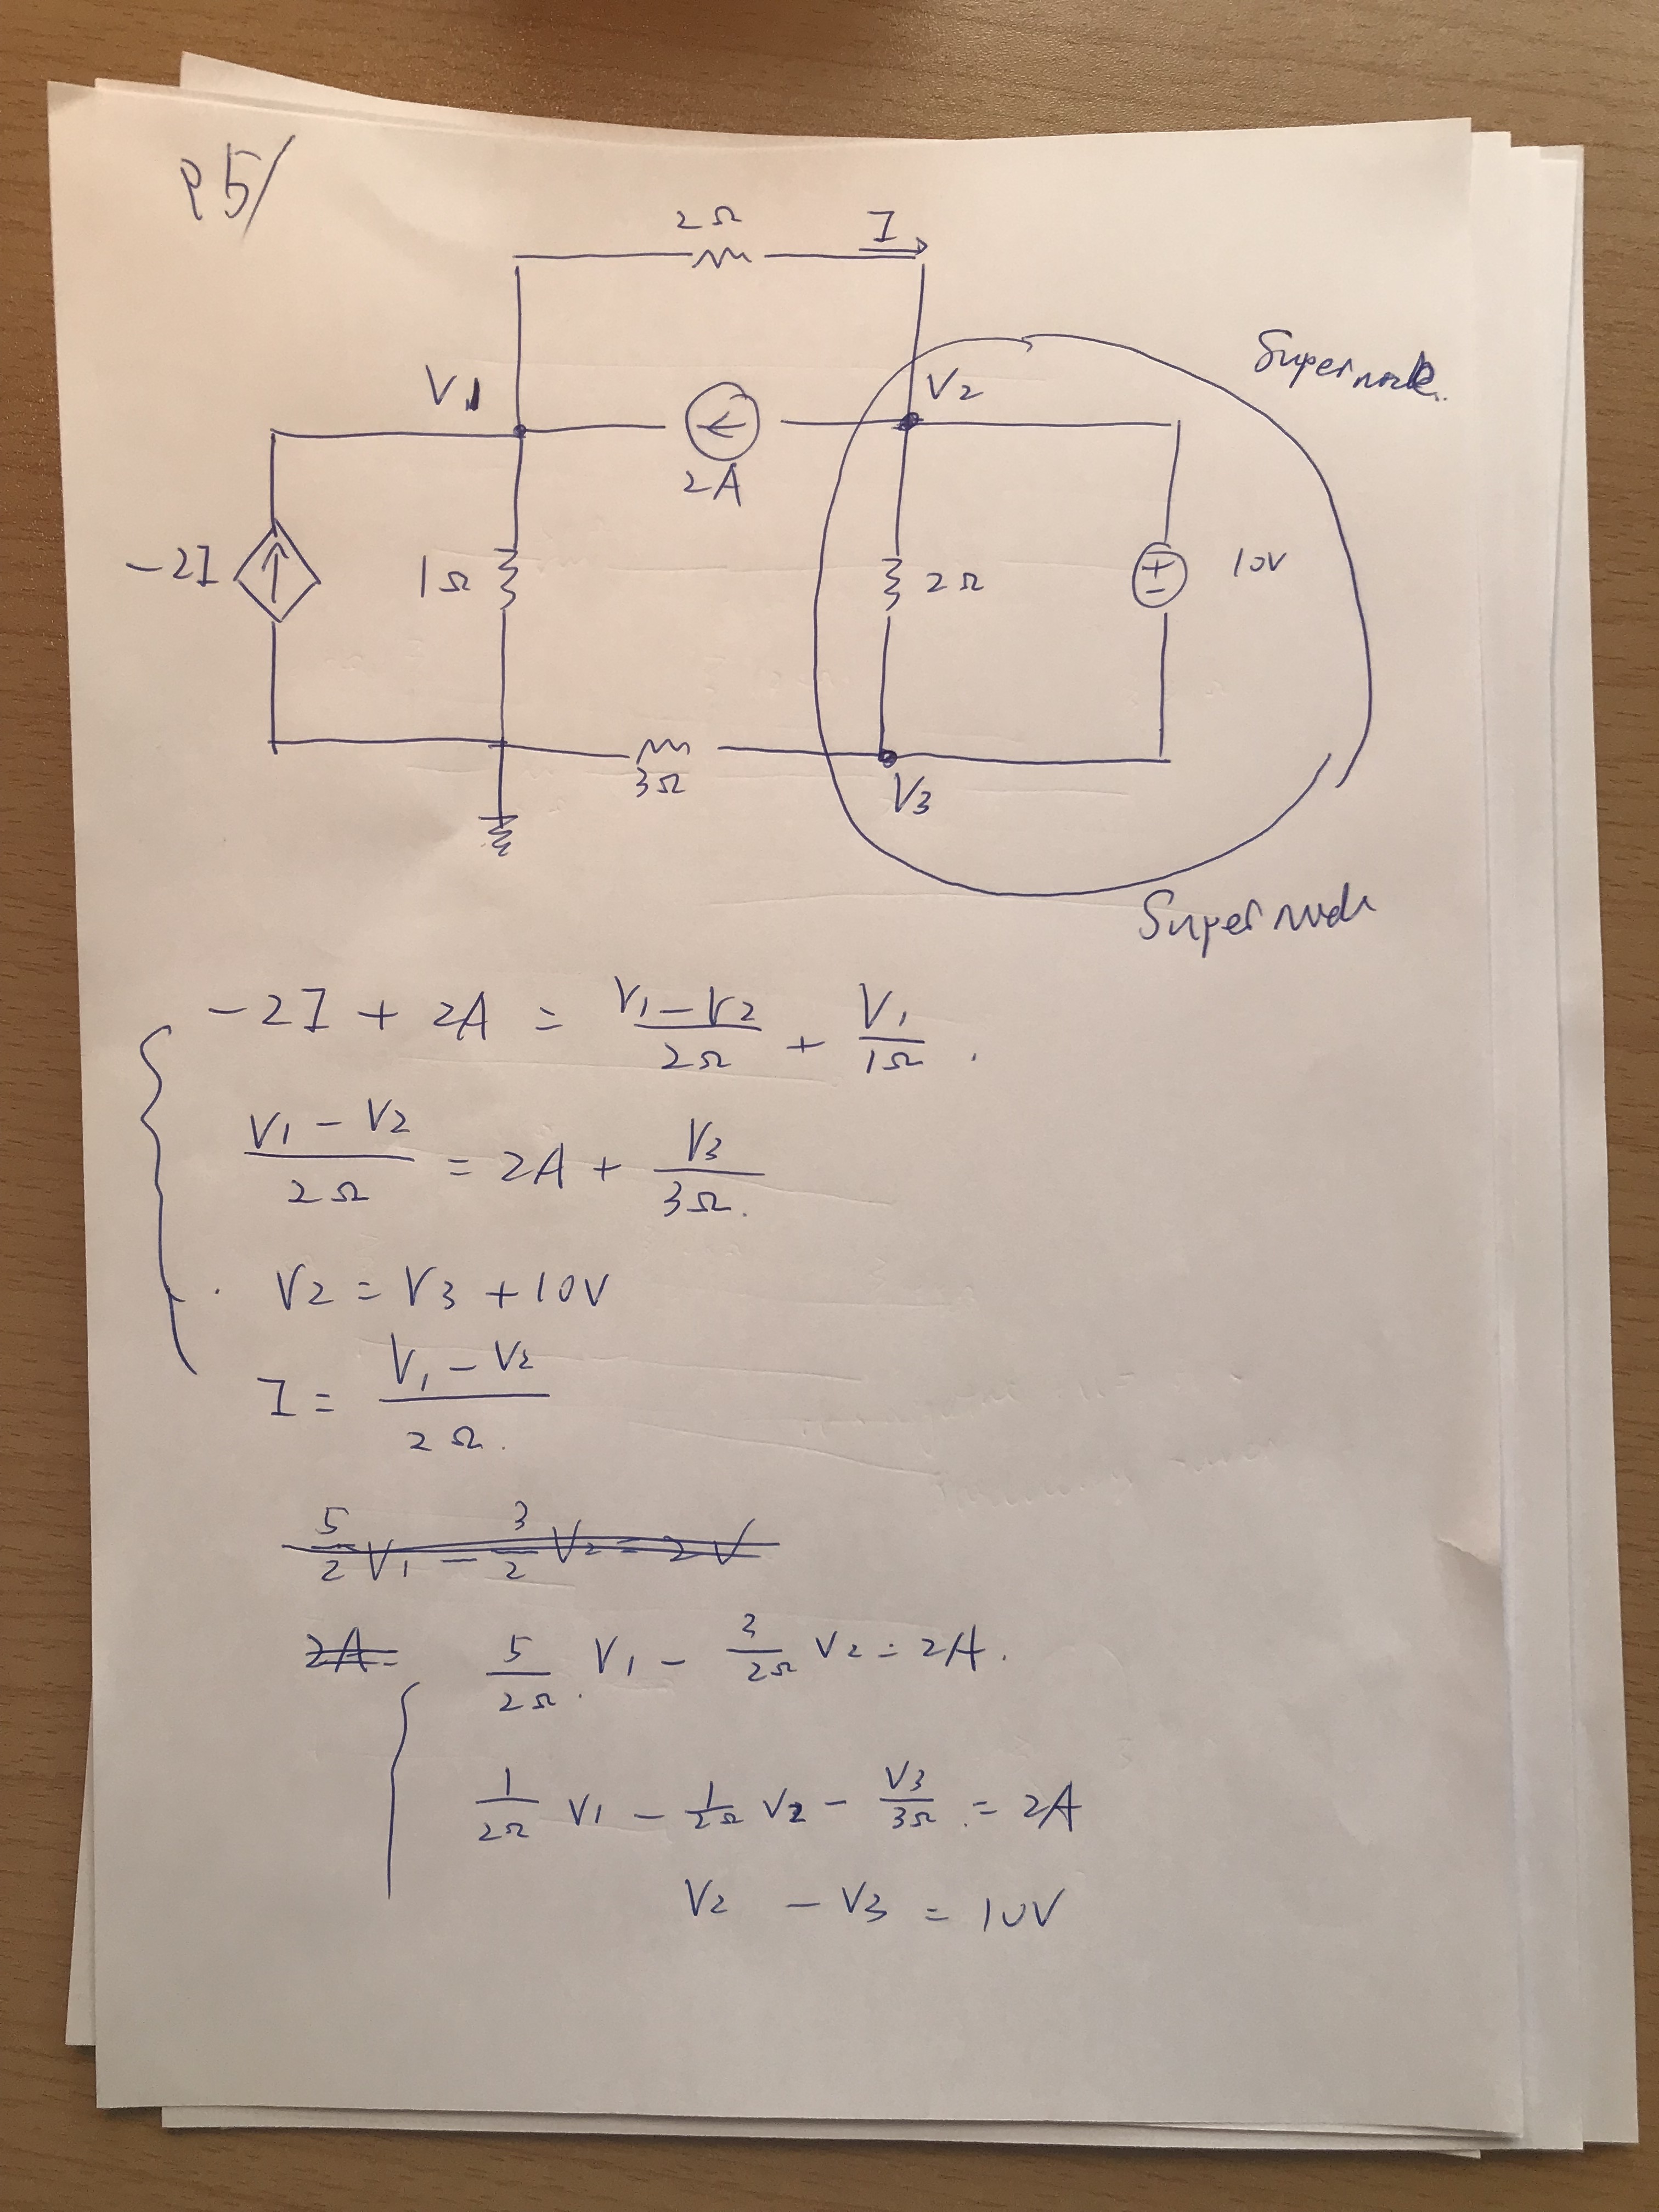 P5/
2Ω
I
Supernode.
V1
V2
2A
-2I
1Ω
2Ω
+
-
10V
3Ω
V3
Supernode
-2I + 2A = (V1-V2)/2Ω + V1/1Ω .
(V1 - V2)/2Ω = 2A + V3/3Ω.
V2 = V3 + 10V
I = (V1 - V2)/2Ω.
5/2 V1 - 3/2 V2 = 2V
2A = 5/2Ω. V1 - 3/2Ω V2 = 2A.
1/2Ω V1 - 1/2Ω V2 - V3/3Ω. = 2A
V2 - V3 = 10V